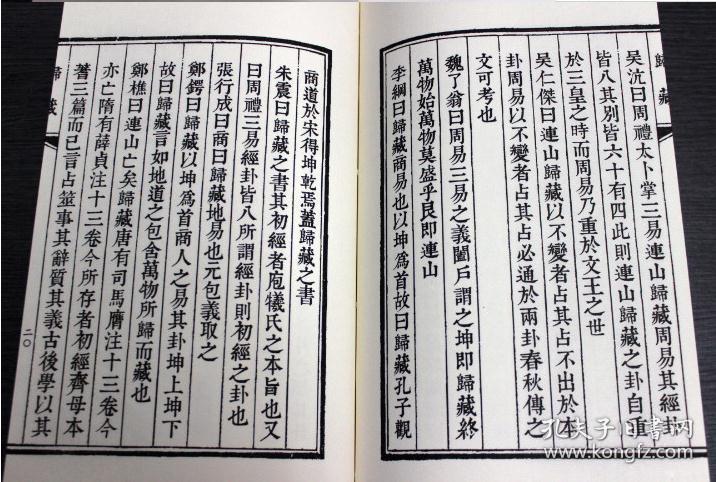 歸藏
吴沆曰周禮太卜掌三易連山歸藏周易其經卦
皆八其别皆六十有四此則連山歸藏之卦自重
於三皇之時而周易乃重於文王之世
吴仁傑曰連山歸藏以不變者占其占不出於本
卦周易以不變者占其占必通於兩卦春秋傳之
文可考也
魏了翁曰周易三易之義闔戶謂之坤即歸藏終
萬物始萬物莫盛乎艮即連山
李綱曰歸藏商易也以坤為首故曰歸藏孔子觀
商道於宋得坤乾焉蓋歸藏之書
朱震曰歸藏之書其初經者庖犧氏之本旨也又
曰周禮三易經卦皆八所謂經卦則初經之卦也
張行成曰商曰歸藏地易也元包義取之
鄭鍔曰歸藏以坤為首商人之易其卦坤上坤下
故曰歸藏言如地道之包含萬物所歸而藏也
鄭樵曰連山亡矣歸藏唐有司馬膺注十三卷今
亦亡隋有薛貞注十三卷今所存者初經齊母本
蓍三篇而已言占筮事其辭質其義古後學以其
歸藏
二〇
孔夫子旧书网
www.kongfz.com